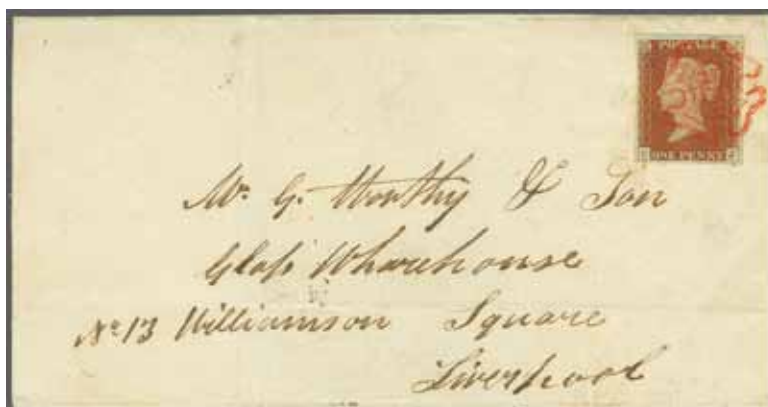 POSTAGE
ONE PENNY
Mr. G. Worthy & Son
Glass Wharehouse
No 13 Williamson Square
Liverpool